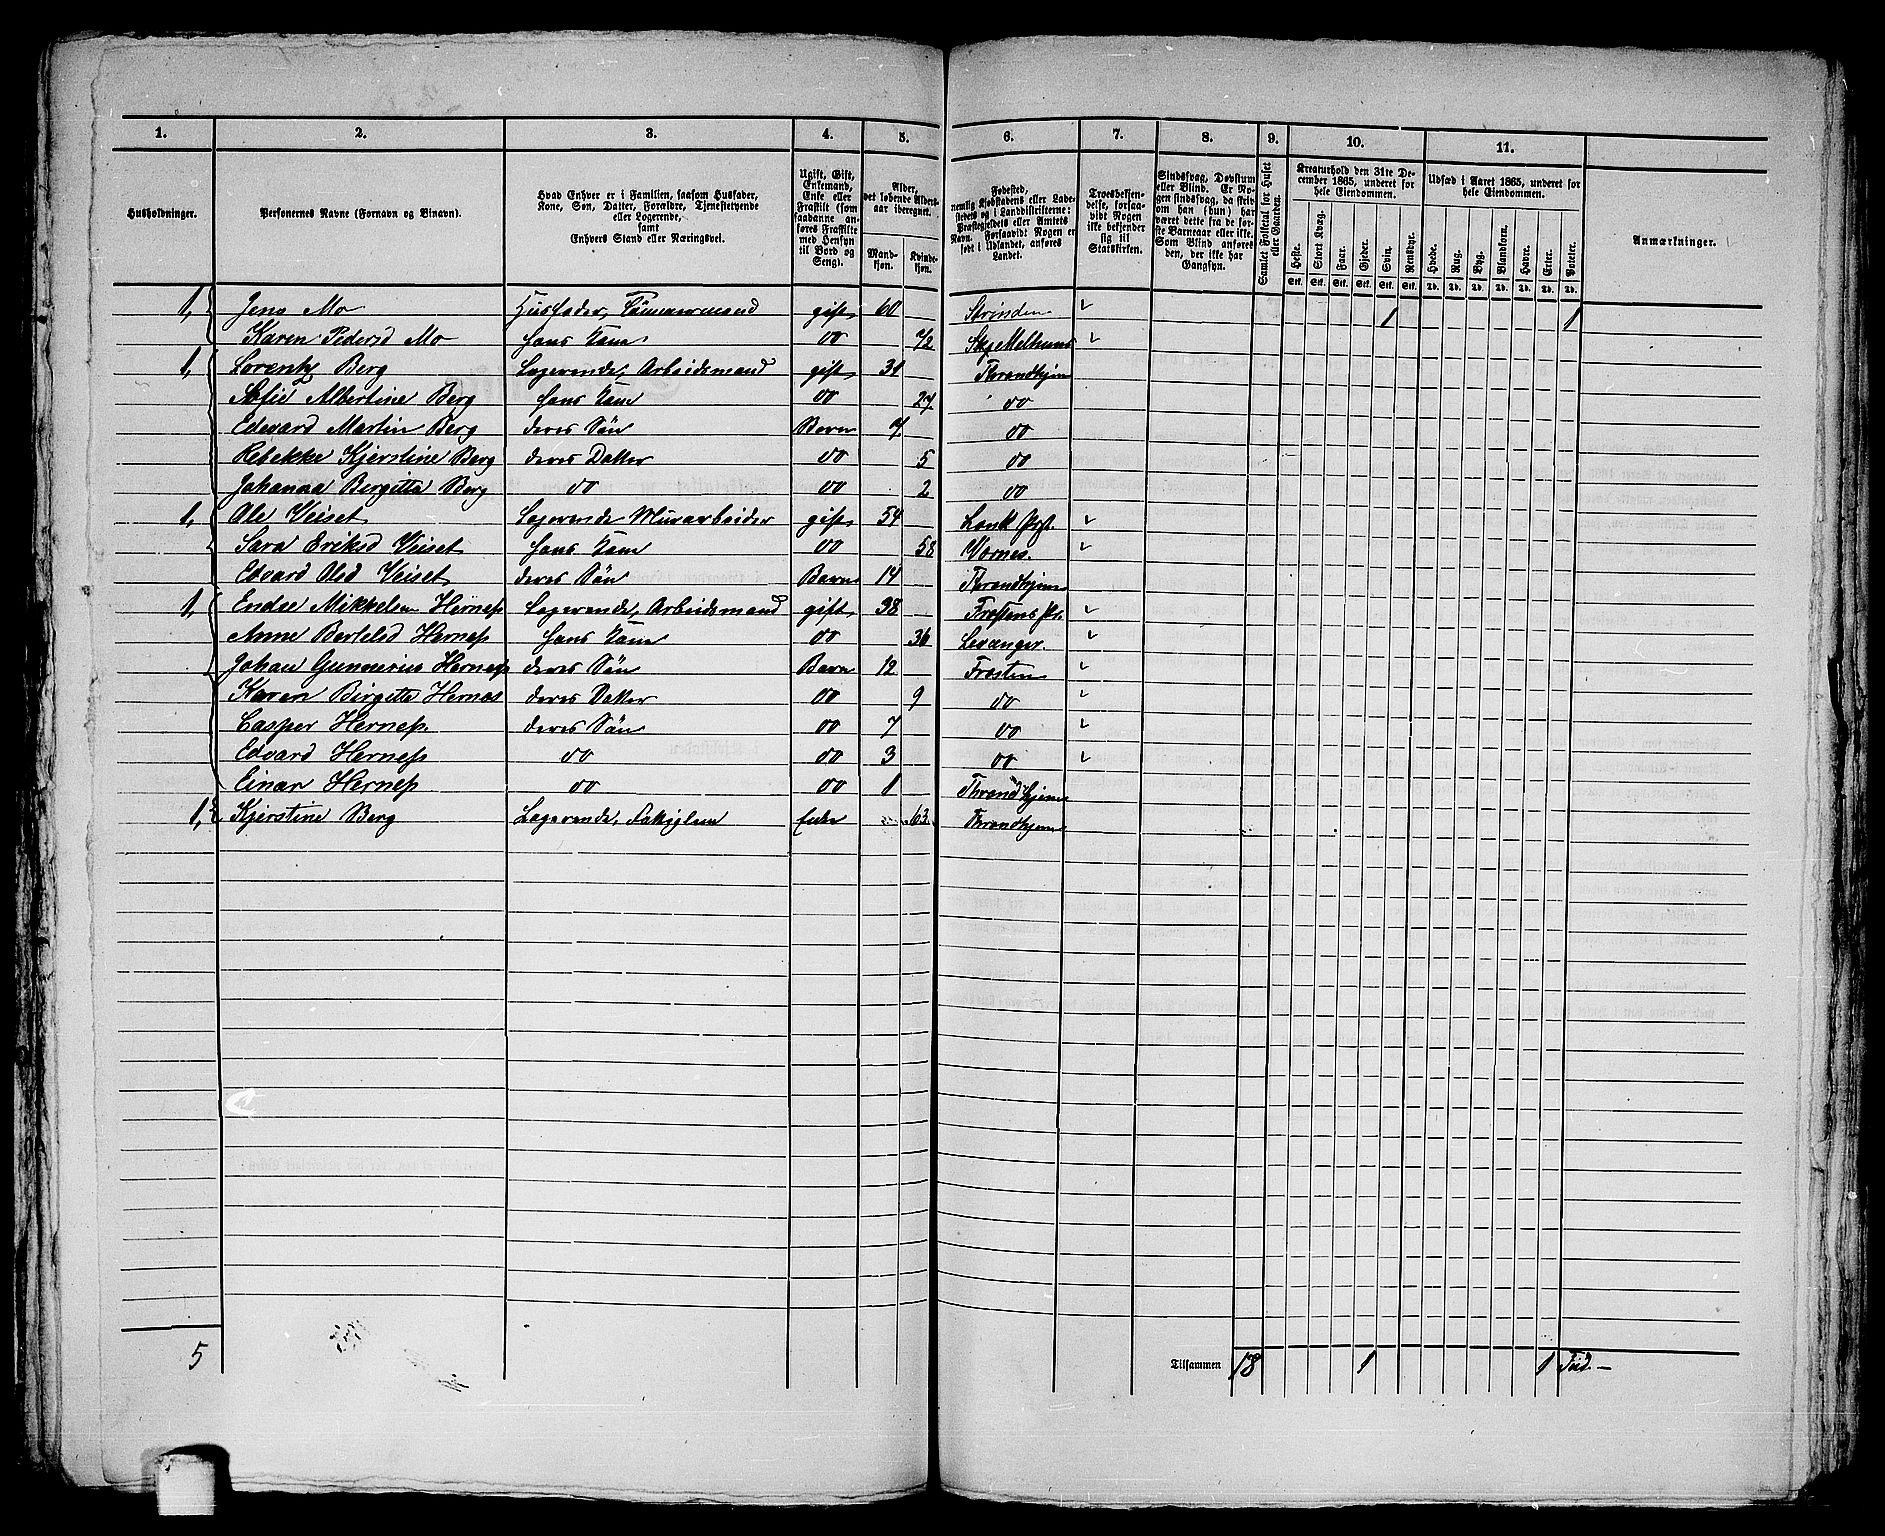 1. 2. 3. 4. 5. 6. 7. 8. 9. 10. 11.
Husholdninger.
Personernes Navne (Fornavn og Binavn).
Hvad Enhver er i Familien, saasom Husfader,
Kone, Søn, Datter, Forældre, Tjenestetyende
eller Logerende,
samt
Enhvers Stand eller Næringsvei.
Ugift, Gift,
Enkemand,
Enke eller
Fraskilt (som
saadanne an-
føres Fraskilte
med Hensyn
til Bord og
Seng).
Alder,
det løbende Alders-
aar iberegnet.
Mand-
kjøn.
Kvinde-
kjøn.
Fødested,
nemlig Kjøbstadens eller Lade-
stedets og i Landdistrikterne:
Præstegjeldets eller Amtets
Navn. Forsaavidt Nogen er
født i Udlandet, anføres
Landet.
Troesbekjen-
delse, forsaa-
vidt Nogen
ikke bekjender
sig til
Statskirken.
Sindssvag, Døvstum
eller Blind. Er No-
gen sindssvag, da skri-
ves om han (hun) har
været dette fra de før-
ste Barneaar eller ikke.
Som Blind anføres
den, der ikke har
Gangsyn.
Samlet Folketal for Huset
eller Gaarden.
Kreaturhold den 31te De-
cember 1865, underet for
hele Eiendommen.
Heste. Stort Kvæg. Faar. Gjeder. Svin. Rensdyr.
Stk. Stk. Stk. Stk. Stk. Stk.
Udsæd i Aaret 1865, underet for
hele Eiendommen.
Hvede. Rug. Byg. Blandkorn. Havre. Erter. Poteter.
Td. Td. Td. Td. Td. Td. Td.
Anmærkninger.
1, Jens Mo Husfader, Tømmermand gift 60 Strinden 1 1
Karen Pedersd Mo hans Kone 72 Melhuus
1, Lorentz Berg Logerende, Arbeidsmand gift 31 Throndhjem
Sofie Albertine Berg hans Kone do 27 do
Edevard Martin Berg deres Søn Barn 7 do
Rebekke Kjerstine Berg deres Datter do 5 do
Johanna Bergitta Berg do do 2 do
1, Ole Veiset Logerende Murarbeider gift 54
Sara Eriksd Veiset hans Kone do 58 Værnes
Edvard Olsd Veiset deres Søn Barn 14 Throndhjem
1, Mikkelsen Herness Logerende, Arbeidsmand gift 38 Frostens
Anne Bertelsd Herness hans Kone do 36 Levanger
Johan Gunnerius Herness deres Søn Barn 12 Frosten
Karen Birgitta Hernes deres Datter do 9 do
Casper Herness deres Søn do 7 do
Edvard Herness do do 3 do
Einar Herness do do 1 Throndhjem
1, Kjerstine Berg Logerende, Enke 63 Throndhjem
5 Tilsammen 18 1 1